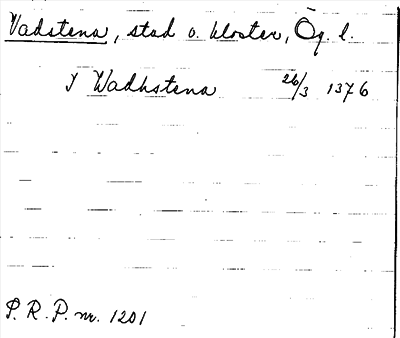 Vadstena, stad o. kloster, Ög. l.
I Wadhstena 26/3 1376
P. R. P. nr. 1201